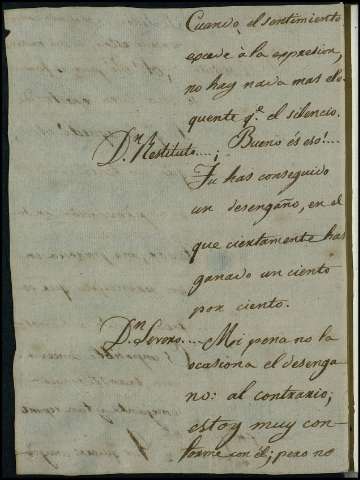 Cuando el sentimiento
excede à la expresion,
no hay nada mas elo
quente q.e el silencio.
D.n Restituto....¡ Bueno és eso!....
Tu has conseguido
un desengaño, en el
que ciertamente has
ganado un ciento
por ciento.
D.n Severo.... Mi pena no la
ocasiona el desenga
no: al contrario,
estoy muy con-
forme con él; pero no